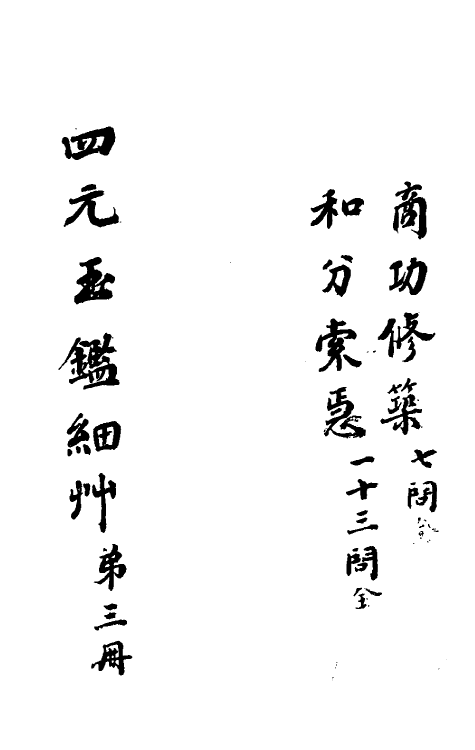 商功修築七問全
和分索隱一十三問全
四元玉鑑細艸弟三冊